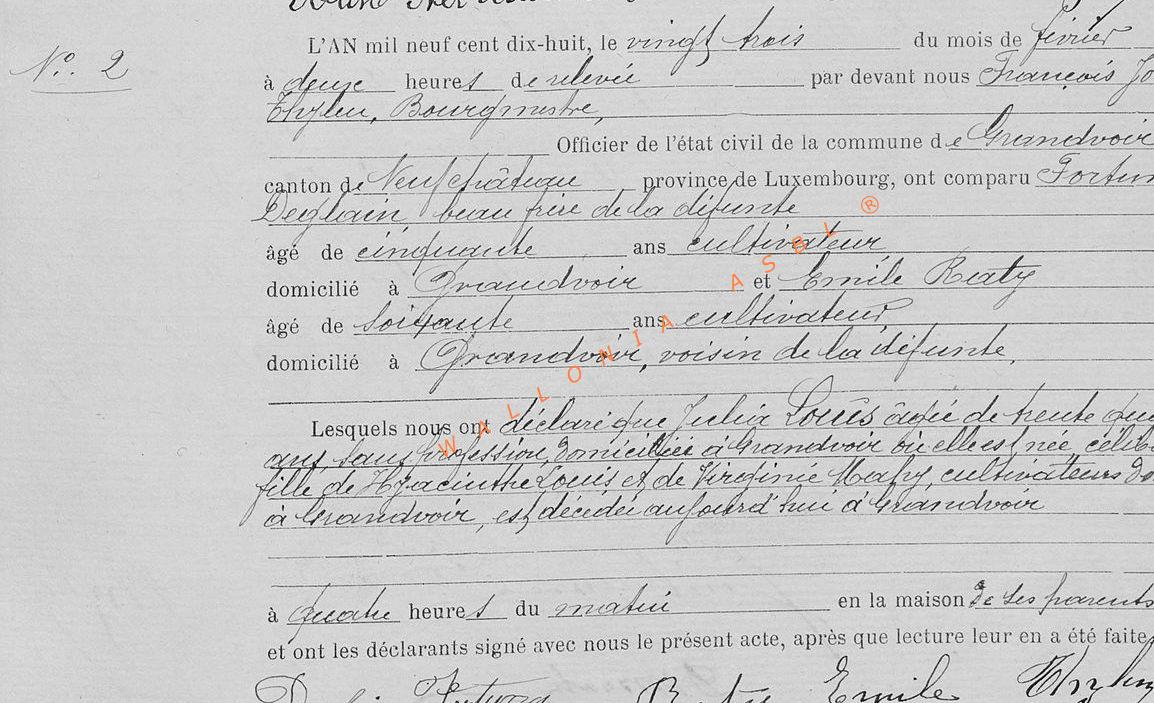 N° 2
L'AN mil neuf cent dix-huit, le vingt trois du mois de février
à deux heures de relevée par devant nous François Jo
Bourgmestre,
Officier de l'état civil de la commune de Grandvoir
canton de Neufchâteau province de Luxembourg, ont comparu Fortun
Deglain, beau frère de la défunte
âgé de cinquante ans cultivateur
domicilié à Grandvoir et Emile Raty
âgé de soixante ans cultivateur
domicilié à Grandvoir, voisin de la défunte,
Lesquels nous ont déclaré que Julia Louis âgée de trente qua
ans, sans profession, domiciliée à Grandvoir où elle est née, céliba
fille de Hyacinthe Louis et de Virginie cultivateurs do
à Grandvoir, est décédée aujourd'hui à Grandvoir
à quatre heures du matin en la maison de ses parents
et ont les déclarants signé avec nous le présent acte, après que lecture leur en a été faite
Emile
WALLONIA ASBL ®